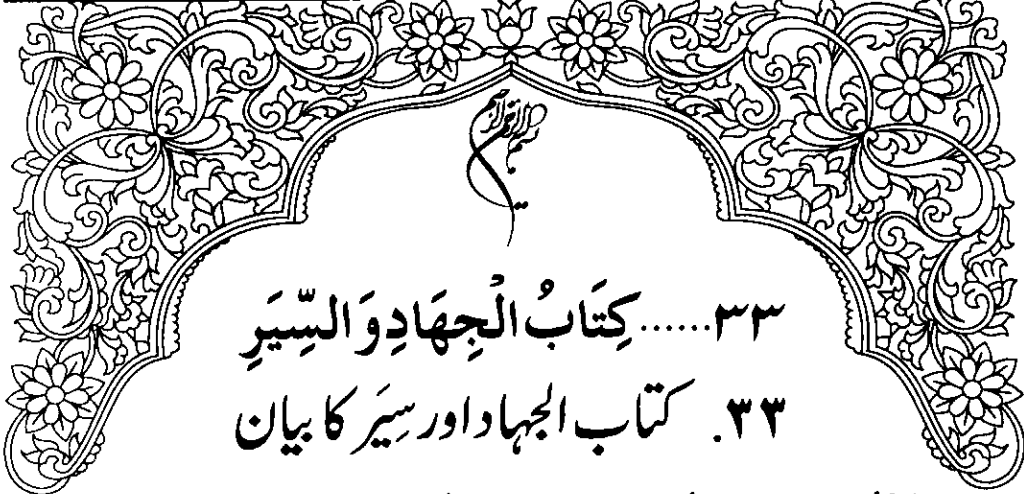 بسم الله الرحمن الرحیم
٣٣......كِتَابُ الْجِهَادِ وَ السِّيَرِ
٣٣. کتاب الجہاد اور سِیَر کا بیان